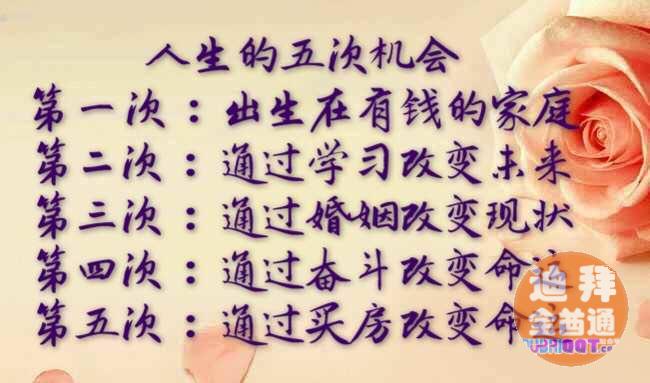 人生的五次机会
第一次：出生在有钱的家庭
第二次：通过学习改变未来
第三次：通过婚姻改变现状
第四次：通过奋斗改变命
第五次：通过买房改变命
迪拜
全酋通